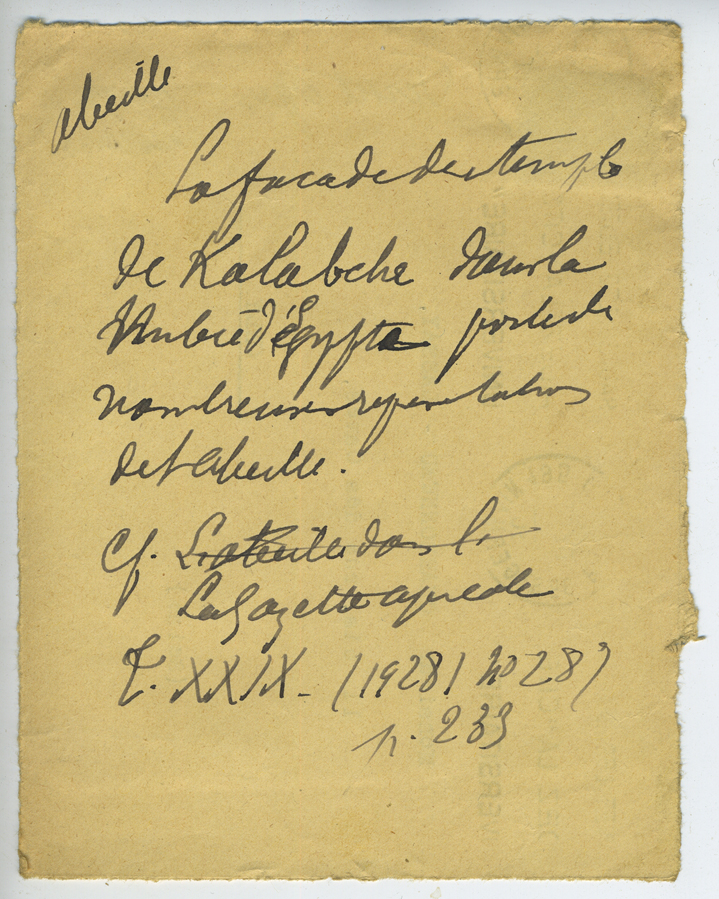 abeille
La facade du temple
de Kalabche dans la
Nubie d'Égypte porte de
nombreuses représentations
de l'abeille.
Cf. L'abeille dans la
La Gazette apicole
T. XXIX - (1928) no 287
p. 233